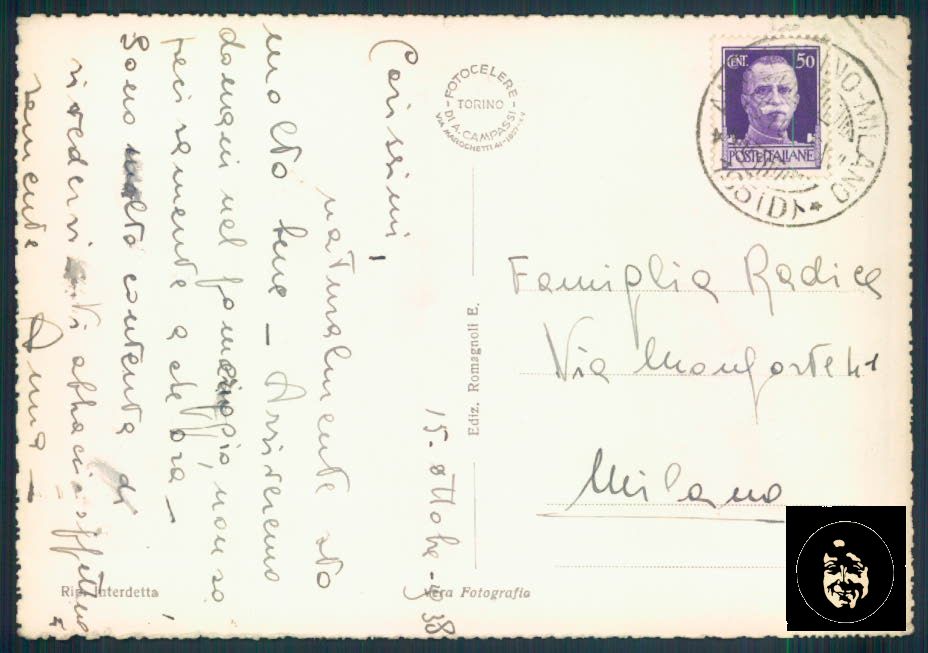 15. ottobre - 38
Carissimi,
naturalmente sto
molto bene - Arriveremo
domani nel pomeriggio, non so
precisamente a che ora -
Sono molto contenta di
rivedervi. Vi abbraccia affettuo
samente Anna -
FOTOCELERE
TORINO
DI A. CAMPASSI
VIA MAROCHETTI 41
Ediz. Romagnoli E.
Rip. Interdetta
Vera Fotografia
CENT. 50
POSTE ITALIANE
NO-MILANO
Famiglia Radice
Via Monforte
Milano